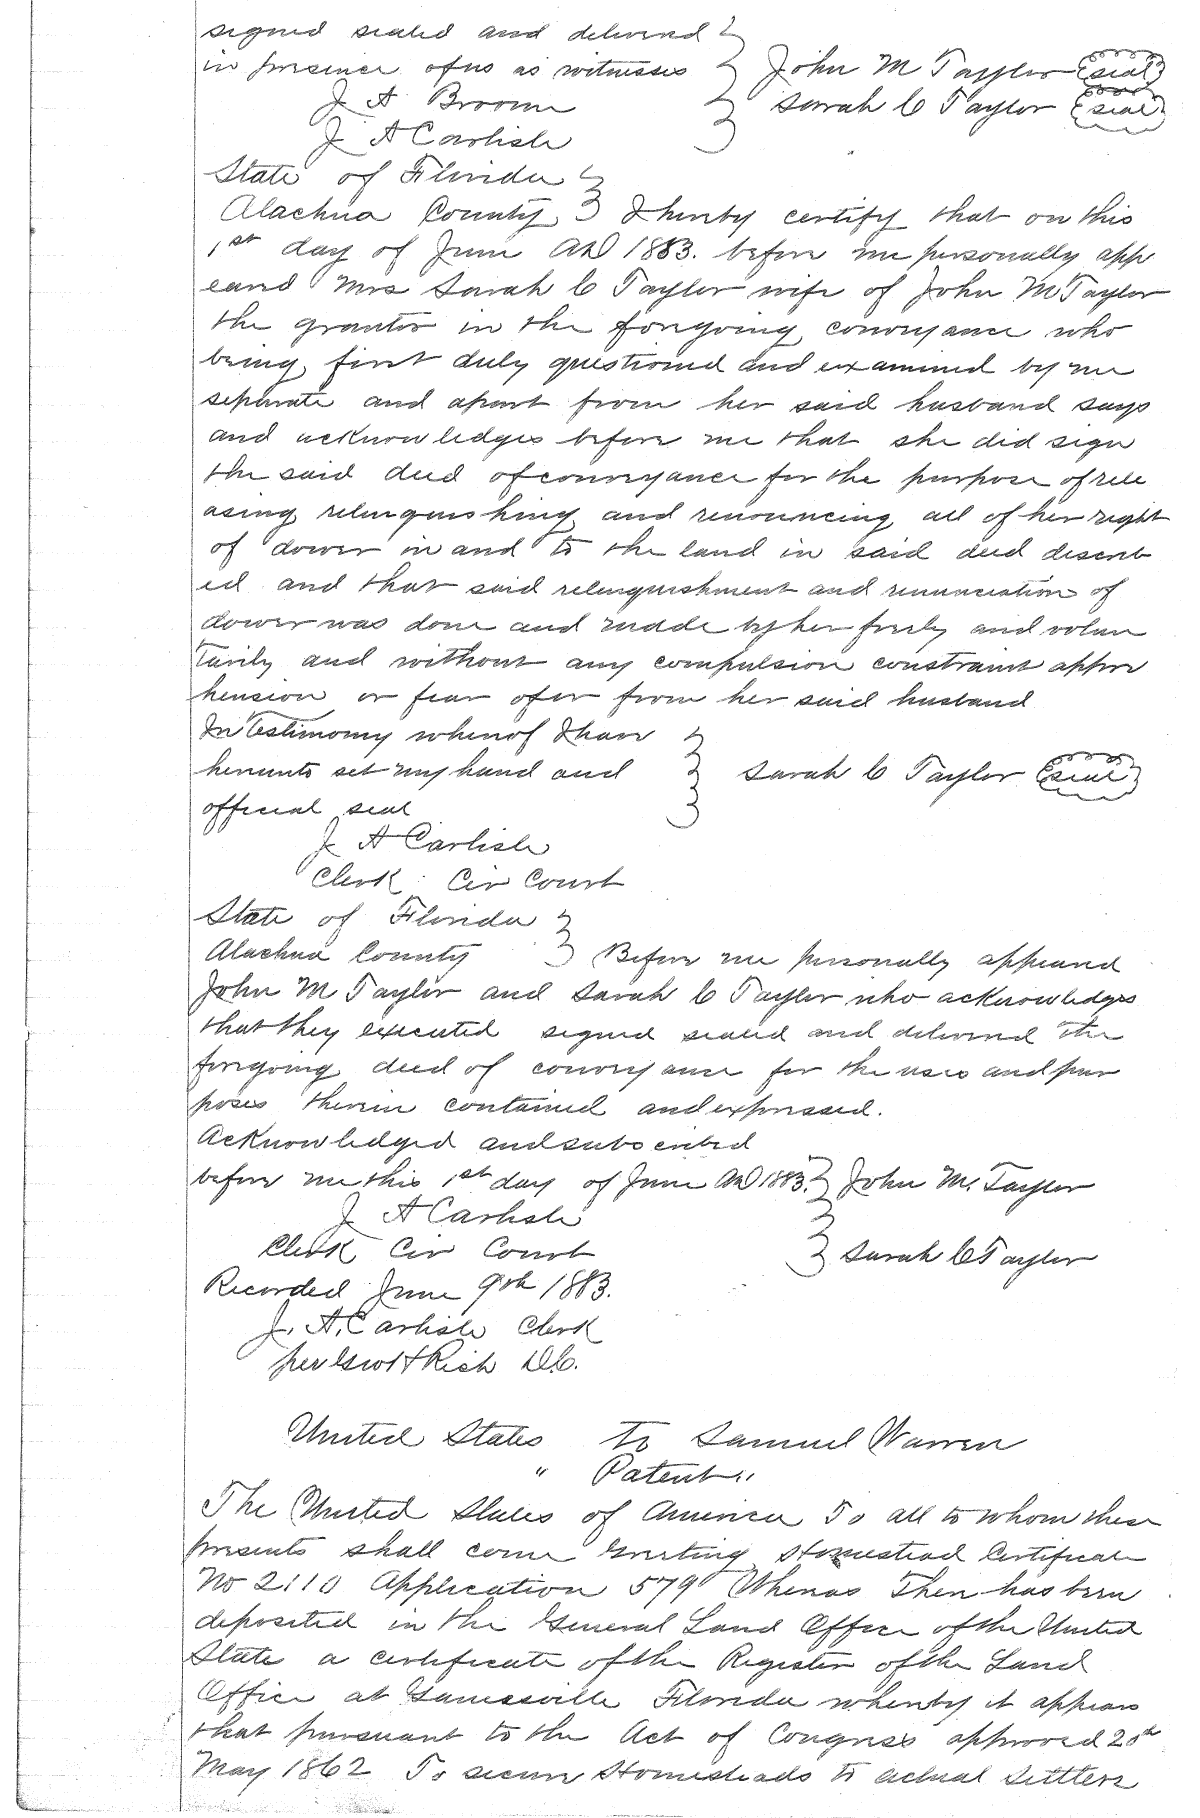 signed sealed and delivered
in presence of us as witnesses } John M Taylor (seal)
J A Broome } Sarah C Taylor (seal)
J A Carlisle
State of Florida }
Alachua County } I hereby certify that on this
1st day of June AD 1883. before me personally app
eared Mrs Sarah C Taylor wife of John M Taylor
the grantor in the foregoing conveyance who
being first duly questioned and examined by me
separate and apart from her said husband says
and acknowledges before me that she did sign
the said deed of conveyance for the purpose of rele
asing relinquishing and renouncing all of her right
of dower in and to the land in said deed describ
ed and that said relinquishment and renunciation of
dower was done and made by her freely and volun
tarily and without any compulsion constraint appre
hension or fear of or from her said husband
In Testimony whereof I have
hereunto set my hand and } Sarah C Taylor (seal)
official seal
J A Carlisle
Clerk Cir Court
State of Florida }
Alachua County } Before me personally appeared
John M Taylor and Sarah C Taylor who acknowledges
that they executed signed sealed and delivered the
foregoing deed of conveyance for the uses and pur
poses therein contained and expressed.
Acknowledged and subscribed
before me this 1st day of June AD 1883. } John M. Taylor
J A Carlisle
Clerk Cir Court } Sarah C Taylor
Recorded June 9th 1883.
J. A. Carlisle Clerk
per Rich D.C.
United States to Samuel Warren
" Patent "
The United States of America To all to whom these
presents shall come Greeting Homestead Certificate
No 2110 Application 579 Whereas There has been
deposited in the General Land Office of the United
State a certificate of the Register of the Land
Office at Gainesville Florida whereby it appears
that pursuant to the Act of Congress approved 20th
May 1862 To secure Homesteads to actual Settlers